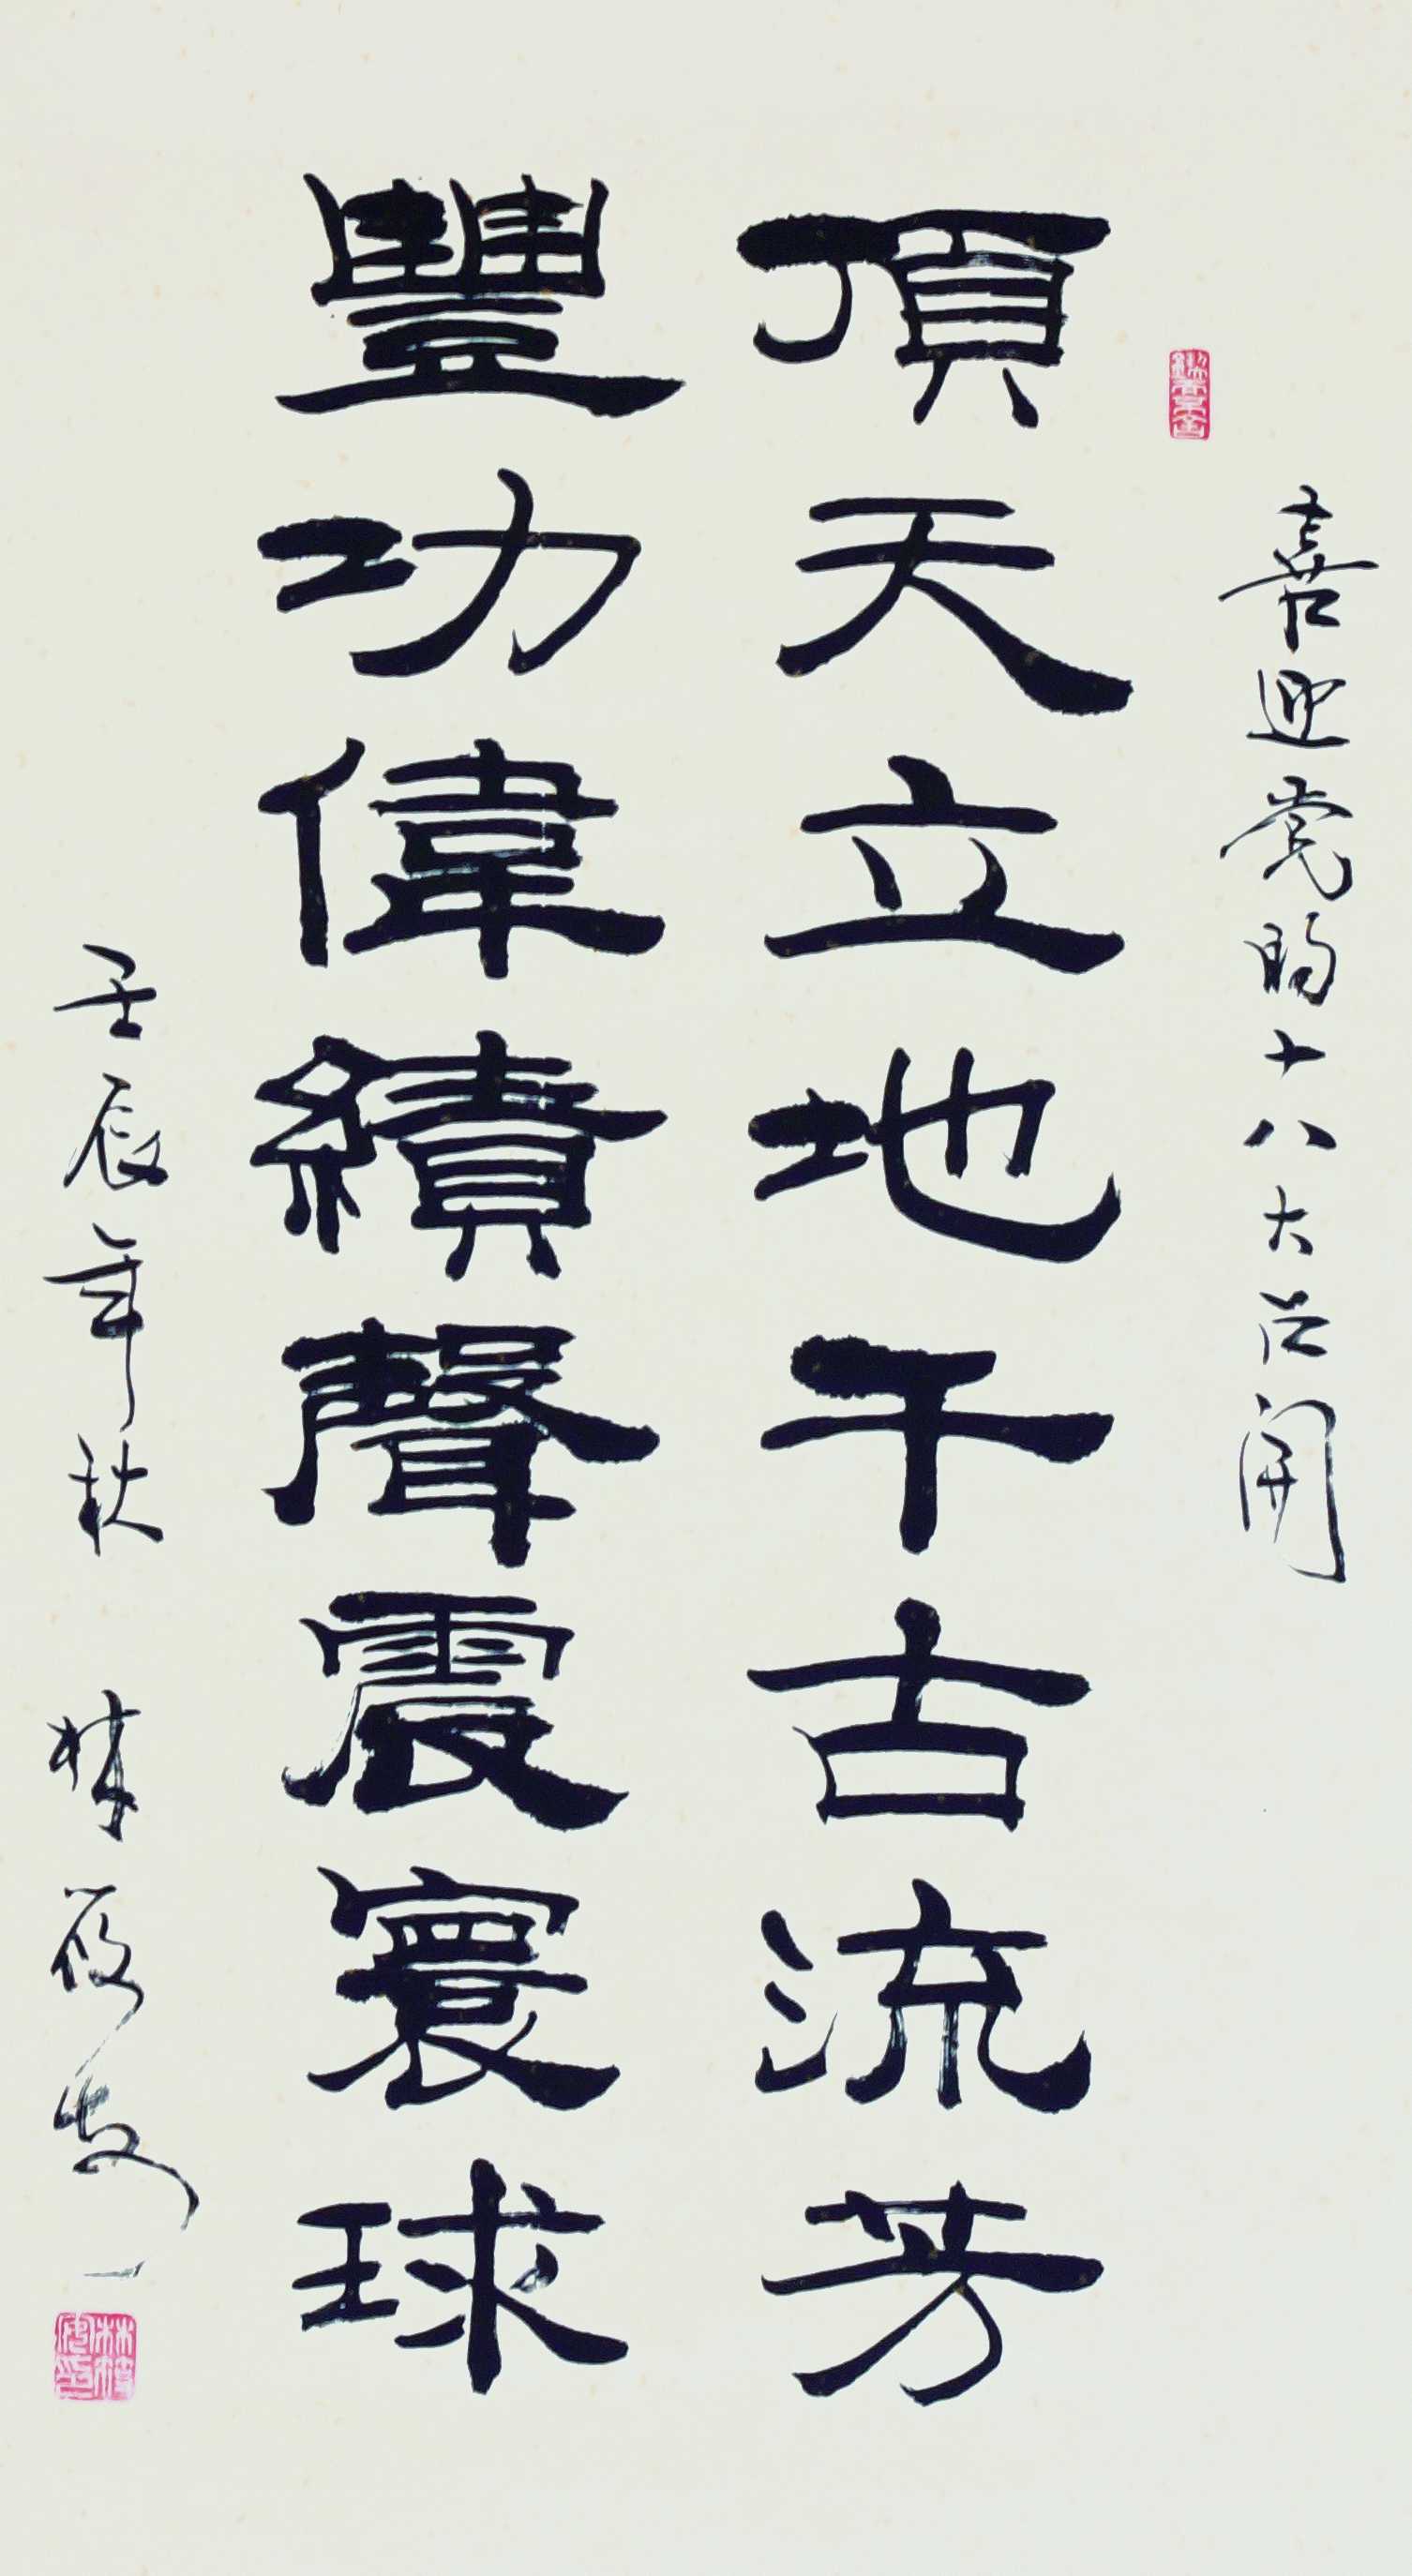 喜迎党的十八大召開
頂天立地千古流芳
豐功偉績聲震寰球
壬辰年秋